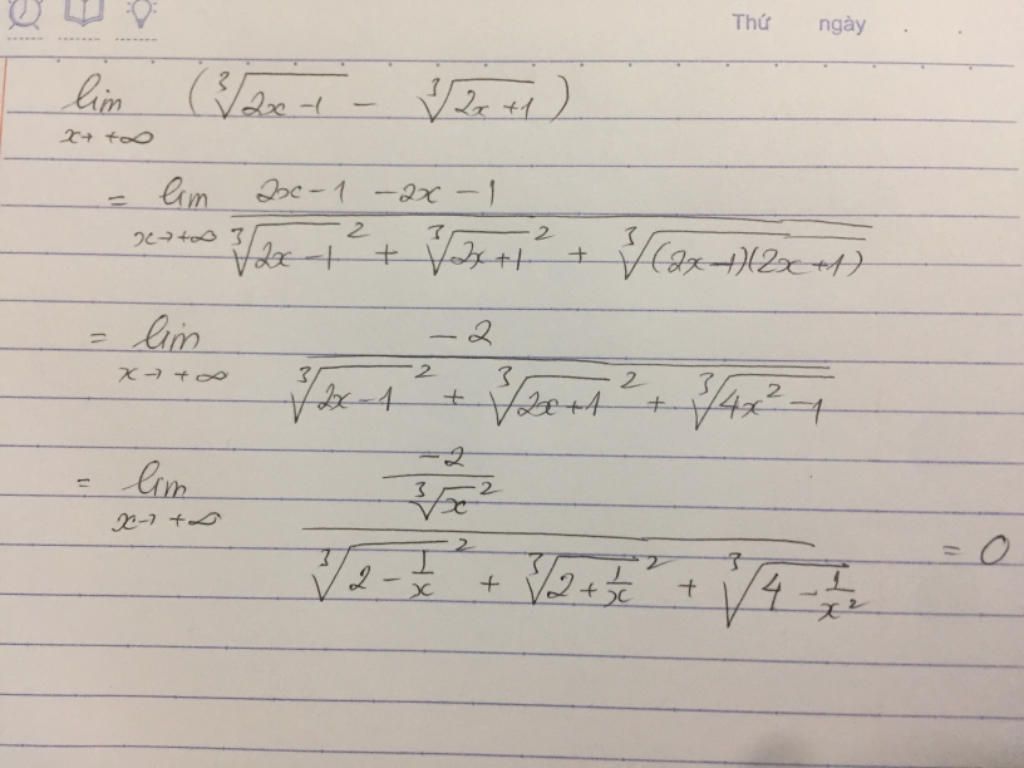 Thứ ngày . .
lim x→+∞ (∛(2x-1) - ∛(2x+1))
= lim x→+∞ (2x-1 -2x-1)/(∛(2x-1)² + ∛(2x+1)² + ∛((2x-1)(2x+1)))
= lim x→+∞ (-2)/(∛(2x-1)² + ∛(2x+1)² + ∛(4x²-1))
= lim x→+∞ (-2/∛x²)/(∛(2-1/x)² + ∛(2+1/x)² + ∛(4-1/x²)) = 0